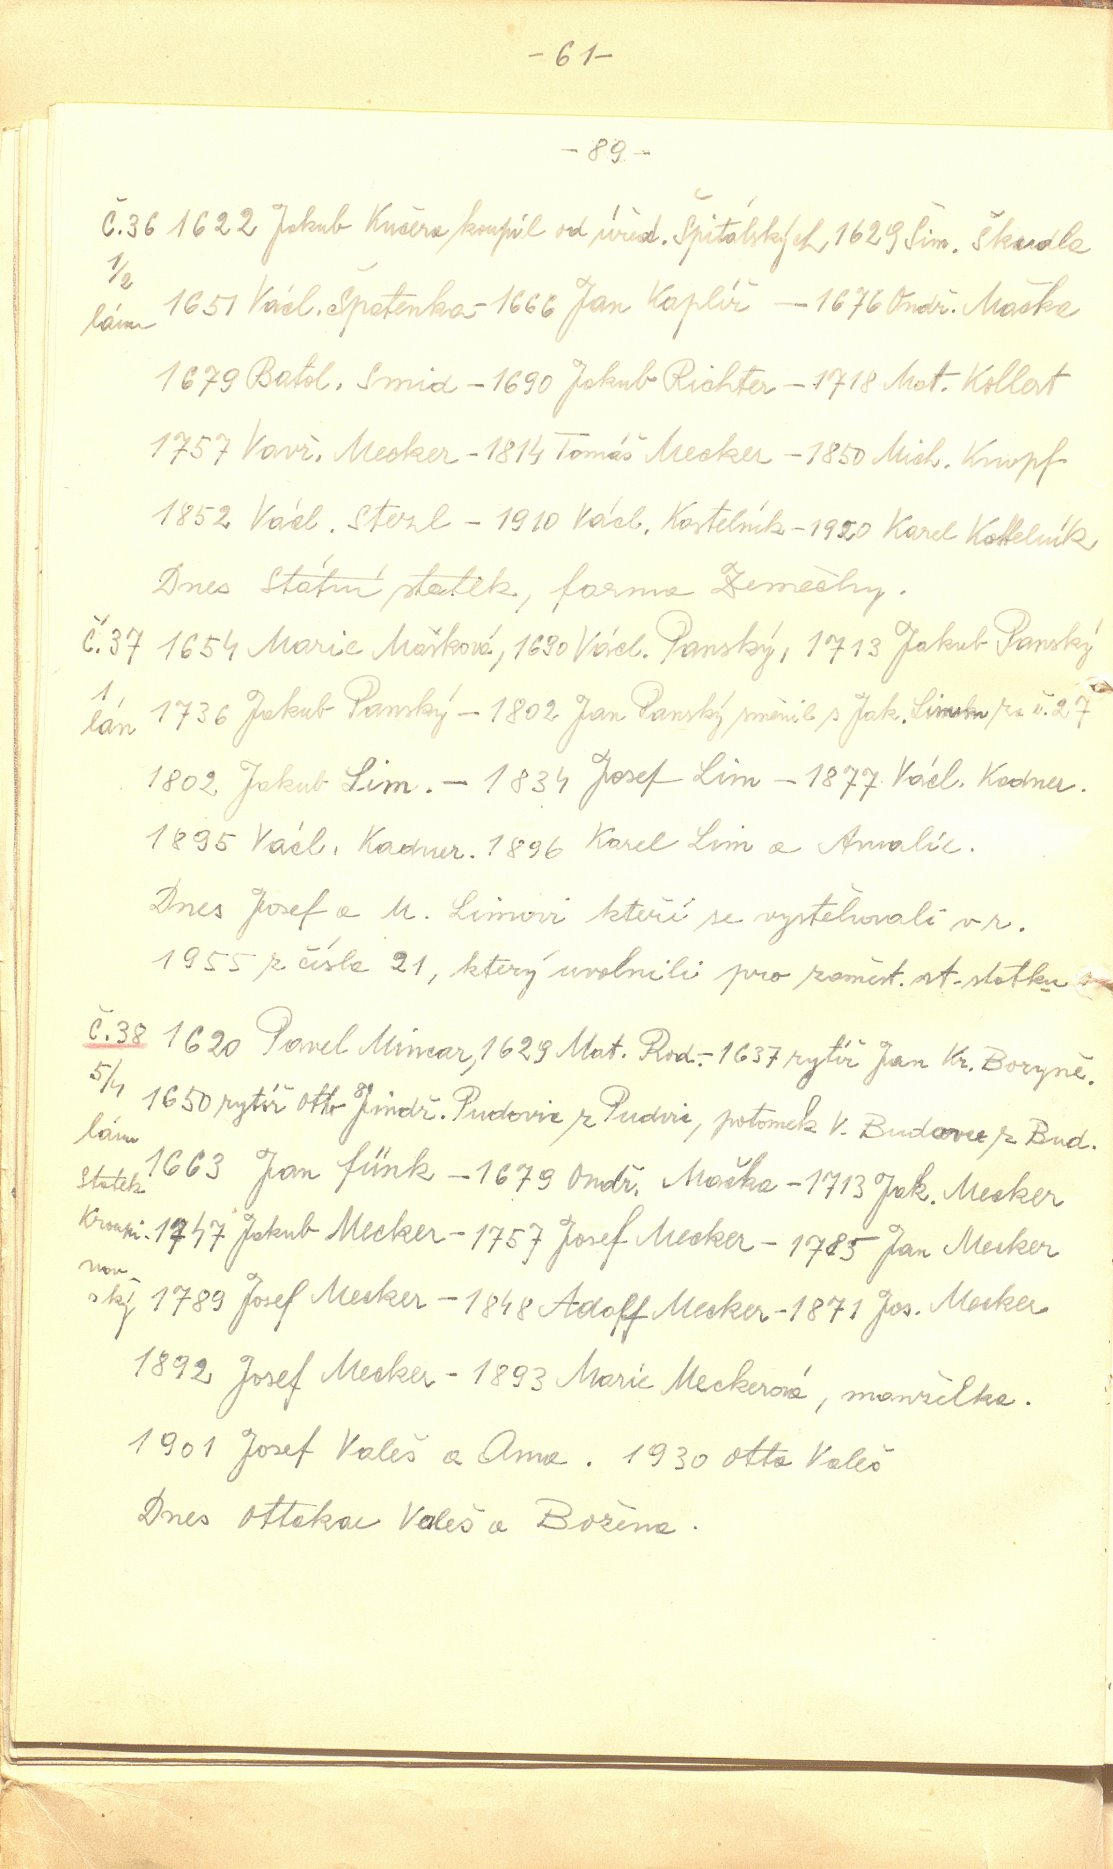 - 61 -
- 89 -
Č.36 1622 Jakub Kučera koupil od úřed. Špitálských 1629 Šim. Škudla
1/2
lánu 1651 Václ. Špatenka - 1666 Jan Kaplíř - 1676 Ondř. Maška
1679 Batol. Smid - 1690 Jakub Richter - 1718 Mat. Kollert
1757 Vavř. Mecker - 1814 Tomáš Mecker - 1850 Mich. Knopf
1852 Václ. Sterzl - 1910 Václ. Kostelník - 1920 Karel Kostelník
Dnes Státní statek, farma Zeměchy.
Č.37 1654 Marie Mašková, 1690 Václ. Panský, 1713 Jakub Panský
1
lán 1736 Jakub Panský - 1802 Jan Panský směnil s Jak. Limem za č. 27
1802 Jakub Lim. - 1834 Josef Lim - 1877 Václ. Kadner.
1895 Václ. Kadner. 1896 Karel Lim a Amalie.
Dnes Josef a M. Limovi kteří se vystěhovali v r.
1955 z čísla 21, který uvolnili pro zaměst. st. statku
Č.38 1620 Pavel Mincar, 1629 Mat. Rod. - 1637 rytíř Jan Kr. Boryně.
5/4 1650 rytíř Otto Jindř. Pudovic z Pudvic, potomek V. Budovce z Bud.
lánu 1663 Jan Fünk - 1679 Ondř. Maška - 1713 Jak. Mecker
Statek
Kroupi- 1747 Jakub Mecker - 1757 Josef Mecker - 1785 Jan Mecker
nov-
ský 1789 Josef Mecker - 1848 Adolf Mecker - 1871 Jos. Mecker
1892 Josef Mecker - 1893 Marie Meckerová, manželka.
1901 Josef Valeš a Anna. 1930 Otto Valeš
Dnes Ottokar Valeš a Božena.